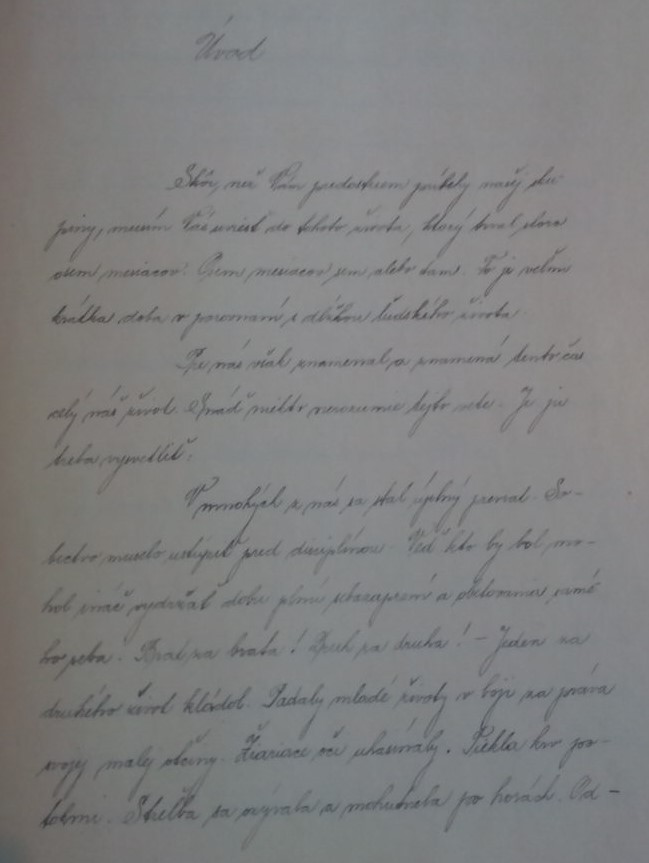 Úvod
Skôr, než Vám predostrem príbehy našej sku
piny, musím Vás uviesť do tohoto života, ktorý trval skoro
osem mesiacov. Osem mesiacov sem alebo tam. To je veľmi
krátka doba v porovnaní s dĺžkou ľudského života.
Pre nás však znamenal a znamená tento čas
celý náš život. Snáď niekto nerozumie tejto vete. Je ju
treba vysvetliť.
V mnohých z nás sa stal úplný prevrat. So-
bectvo muselo ustúpiť pred disciplínou. Veď kto by bol mo-
hol ináč vydržať dobu plnú sebazaprení a obetovania samé
ho seba. Brat za brata! Druh za druha! - Jeden za
druhého život kládol. Padaly mladé životy v boji za práva
svojej malej otčiny. Žiariace oči uhasínaly. Tiekla krv po-
tokmi. Streľba sa ozývala a mohutnela po horách. Od-